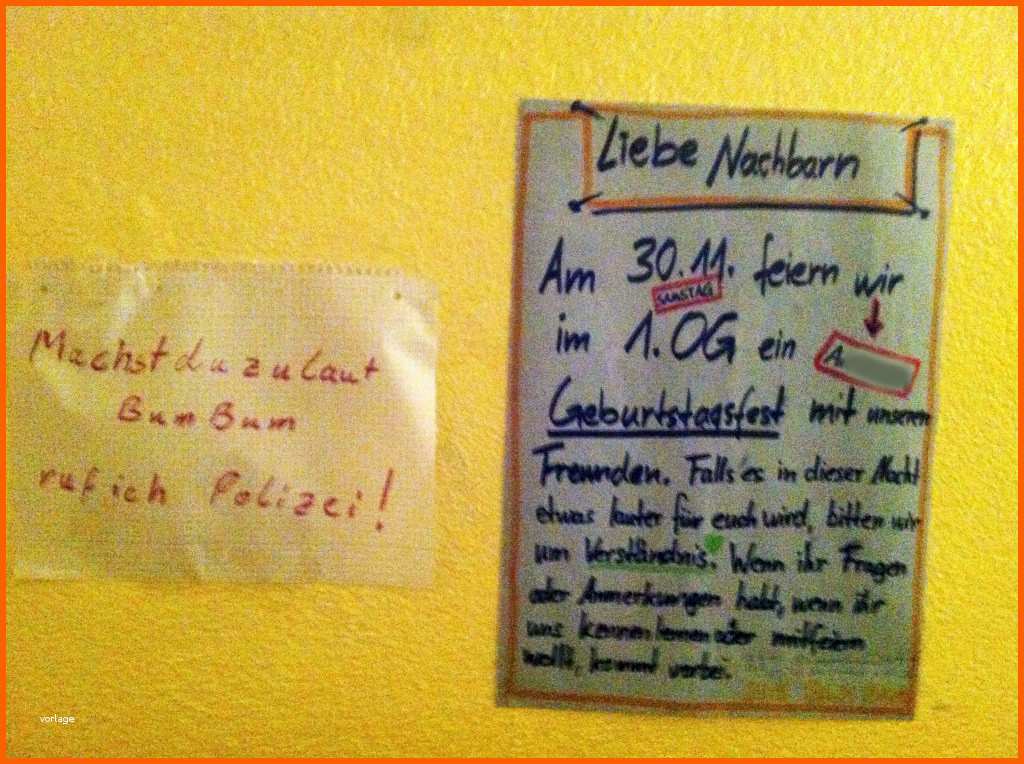 Machst du zu laut
Bum Bum
ruf ich Polizei!
Liebe Nachbarn
Am 30.11. feiern wir
SAMSTAG
im 1.OG ein
A.
Geburtstagsfest mit unseren
Freunden. Falls es in dieser Nacht
etwas lauter für euch wird, bitten wir
um Verständnis. Wenn ihr Fragen
oder Anmerkungen habt, wenn ihr
uns kennenlernen oder mitfeiern
wollt, kommt vorbei.
vorlage